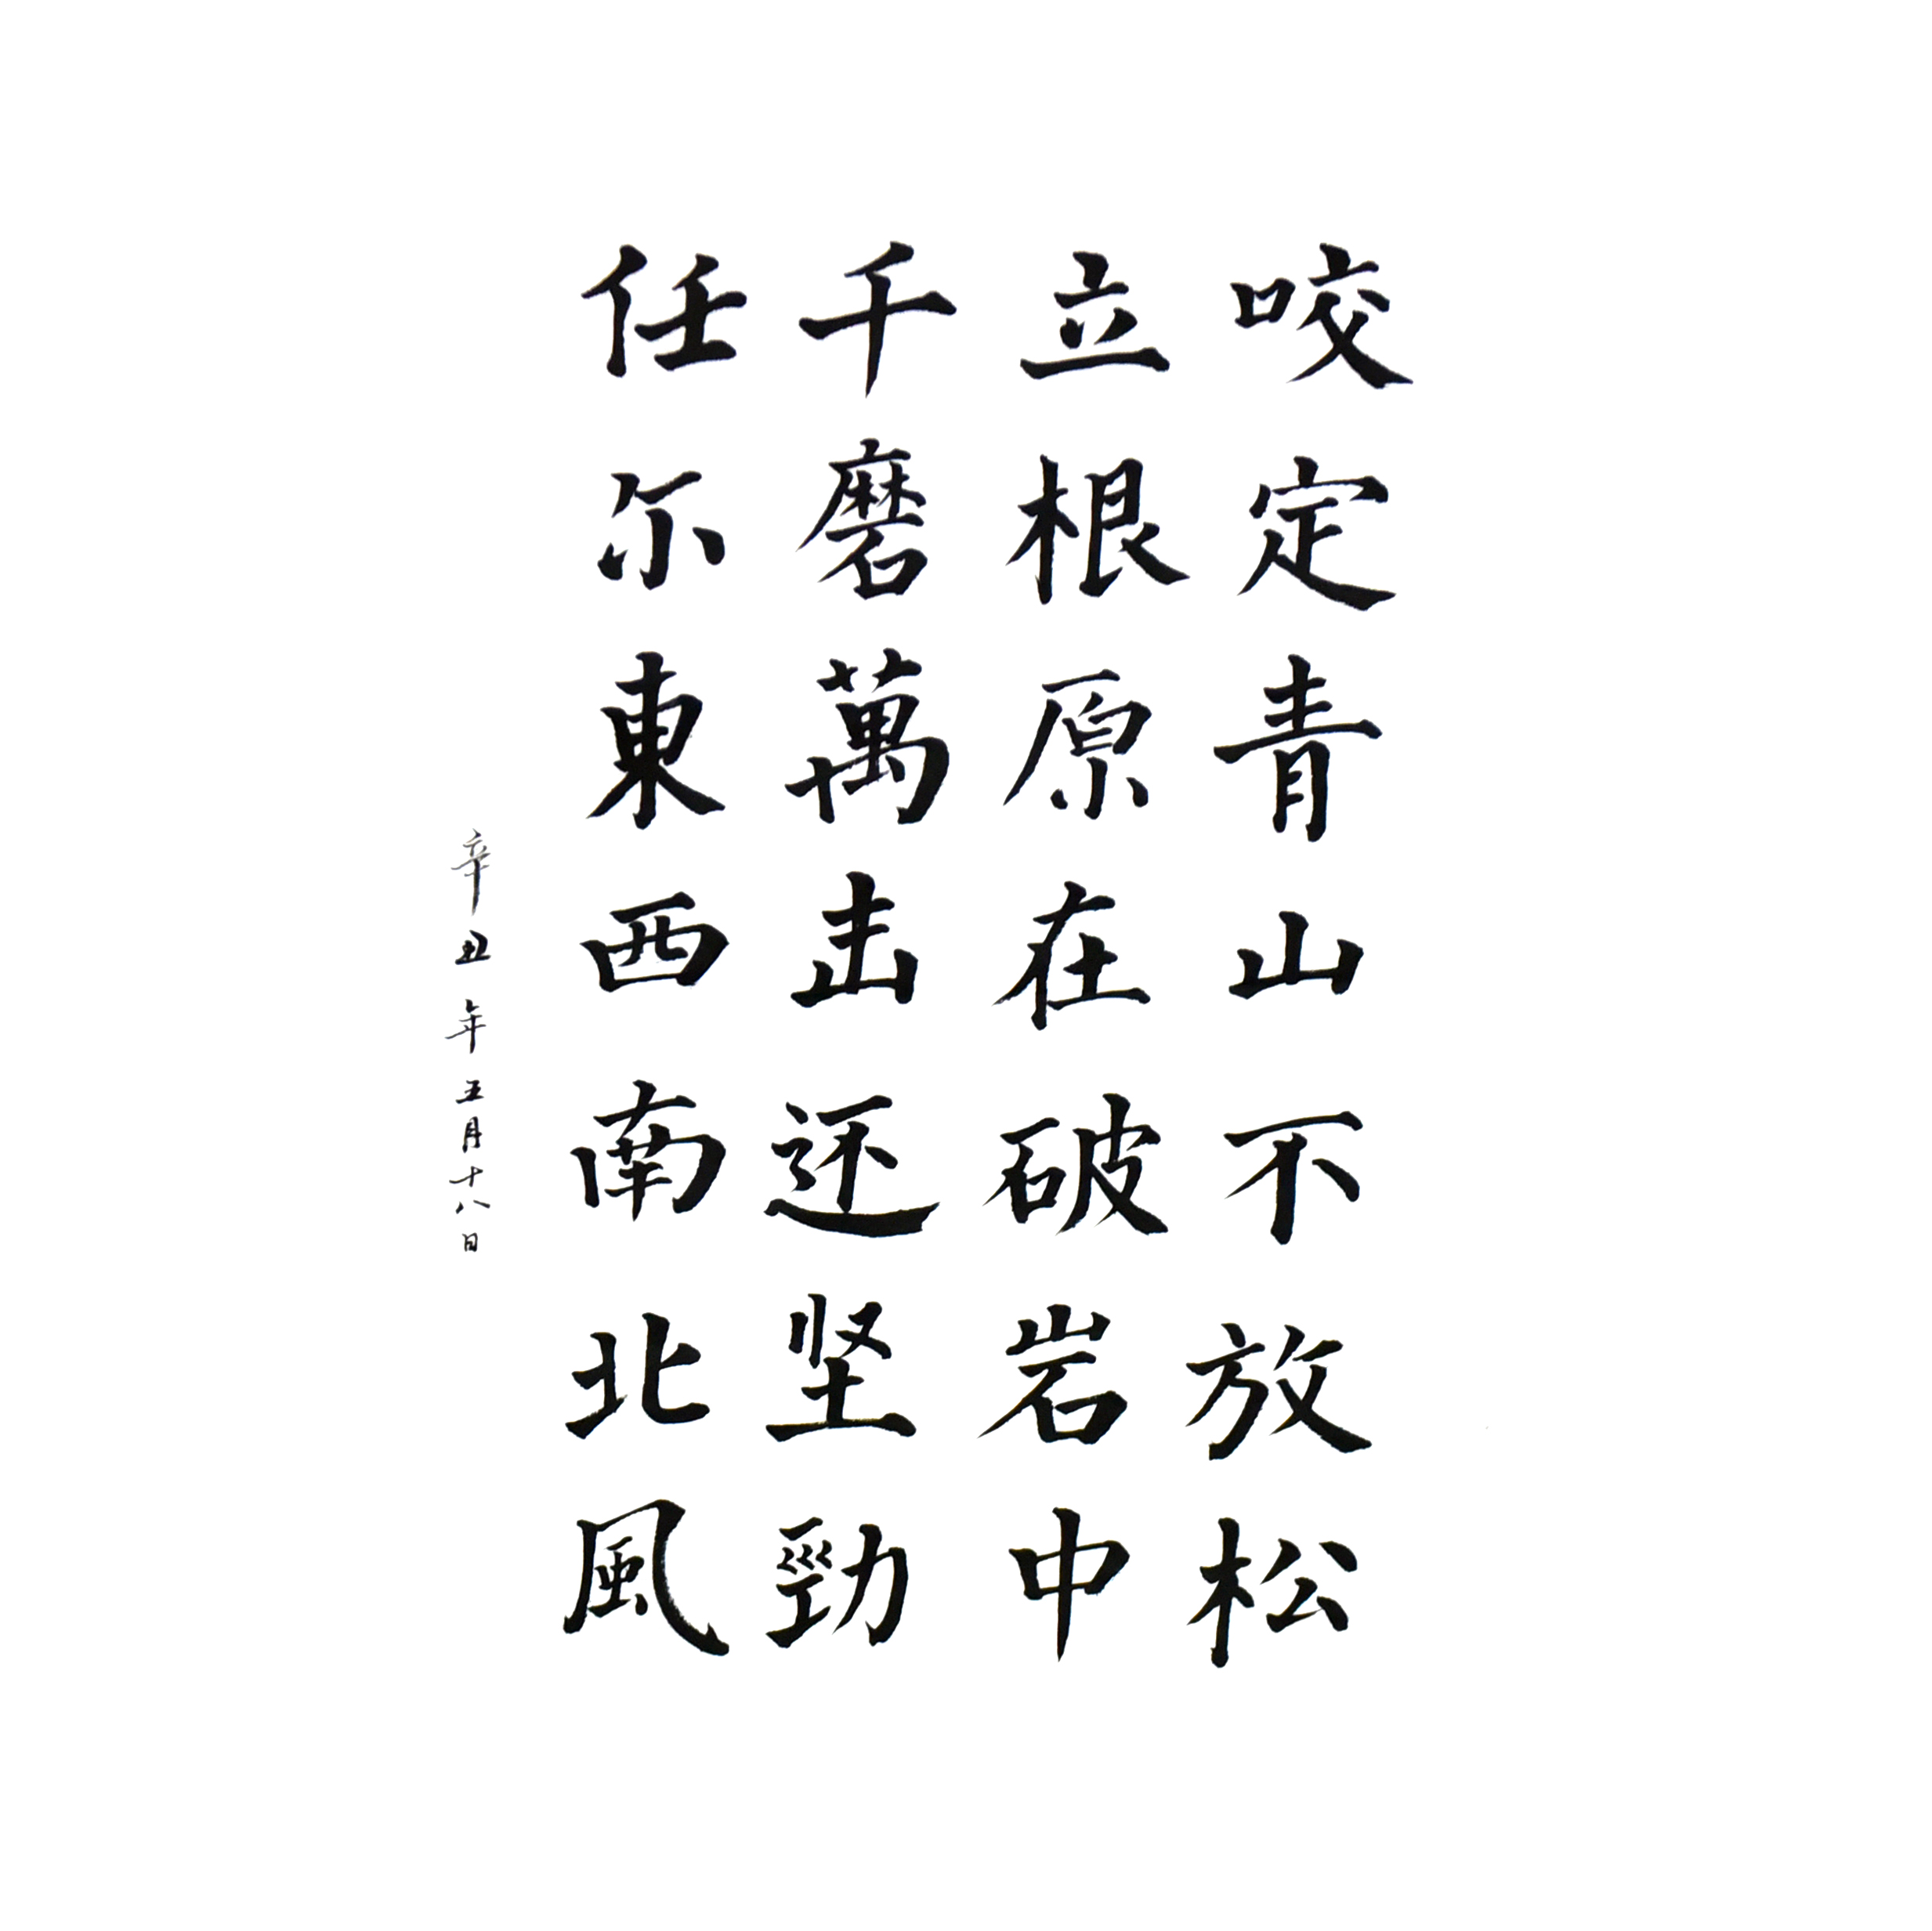 咬定青山不放松
立根原在破岩中
千磨萬击还坚勁
任尔東西南北風
辛丑年五月十八日